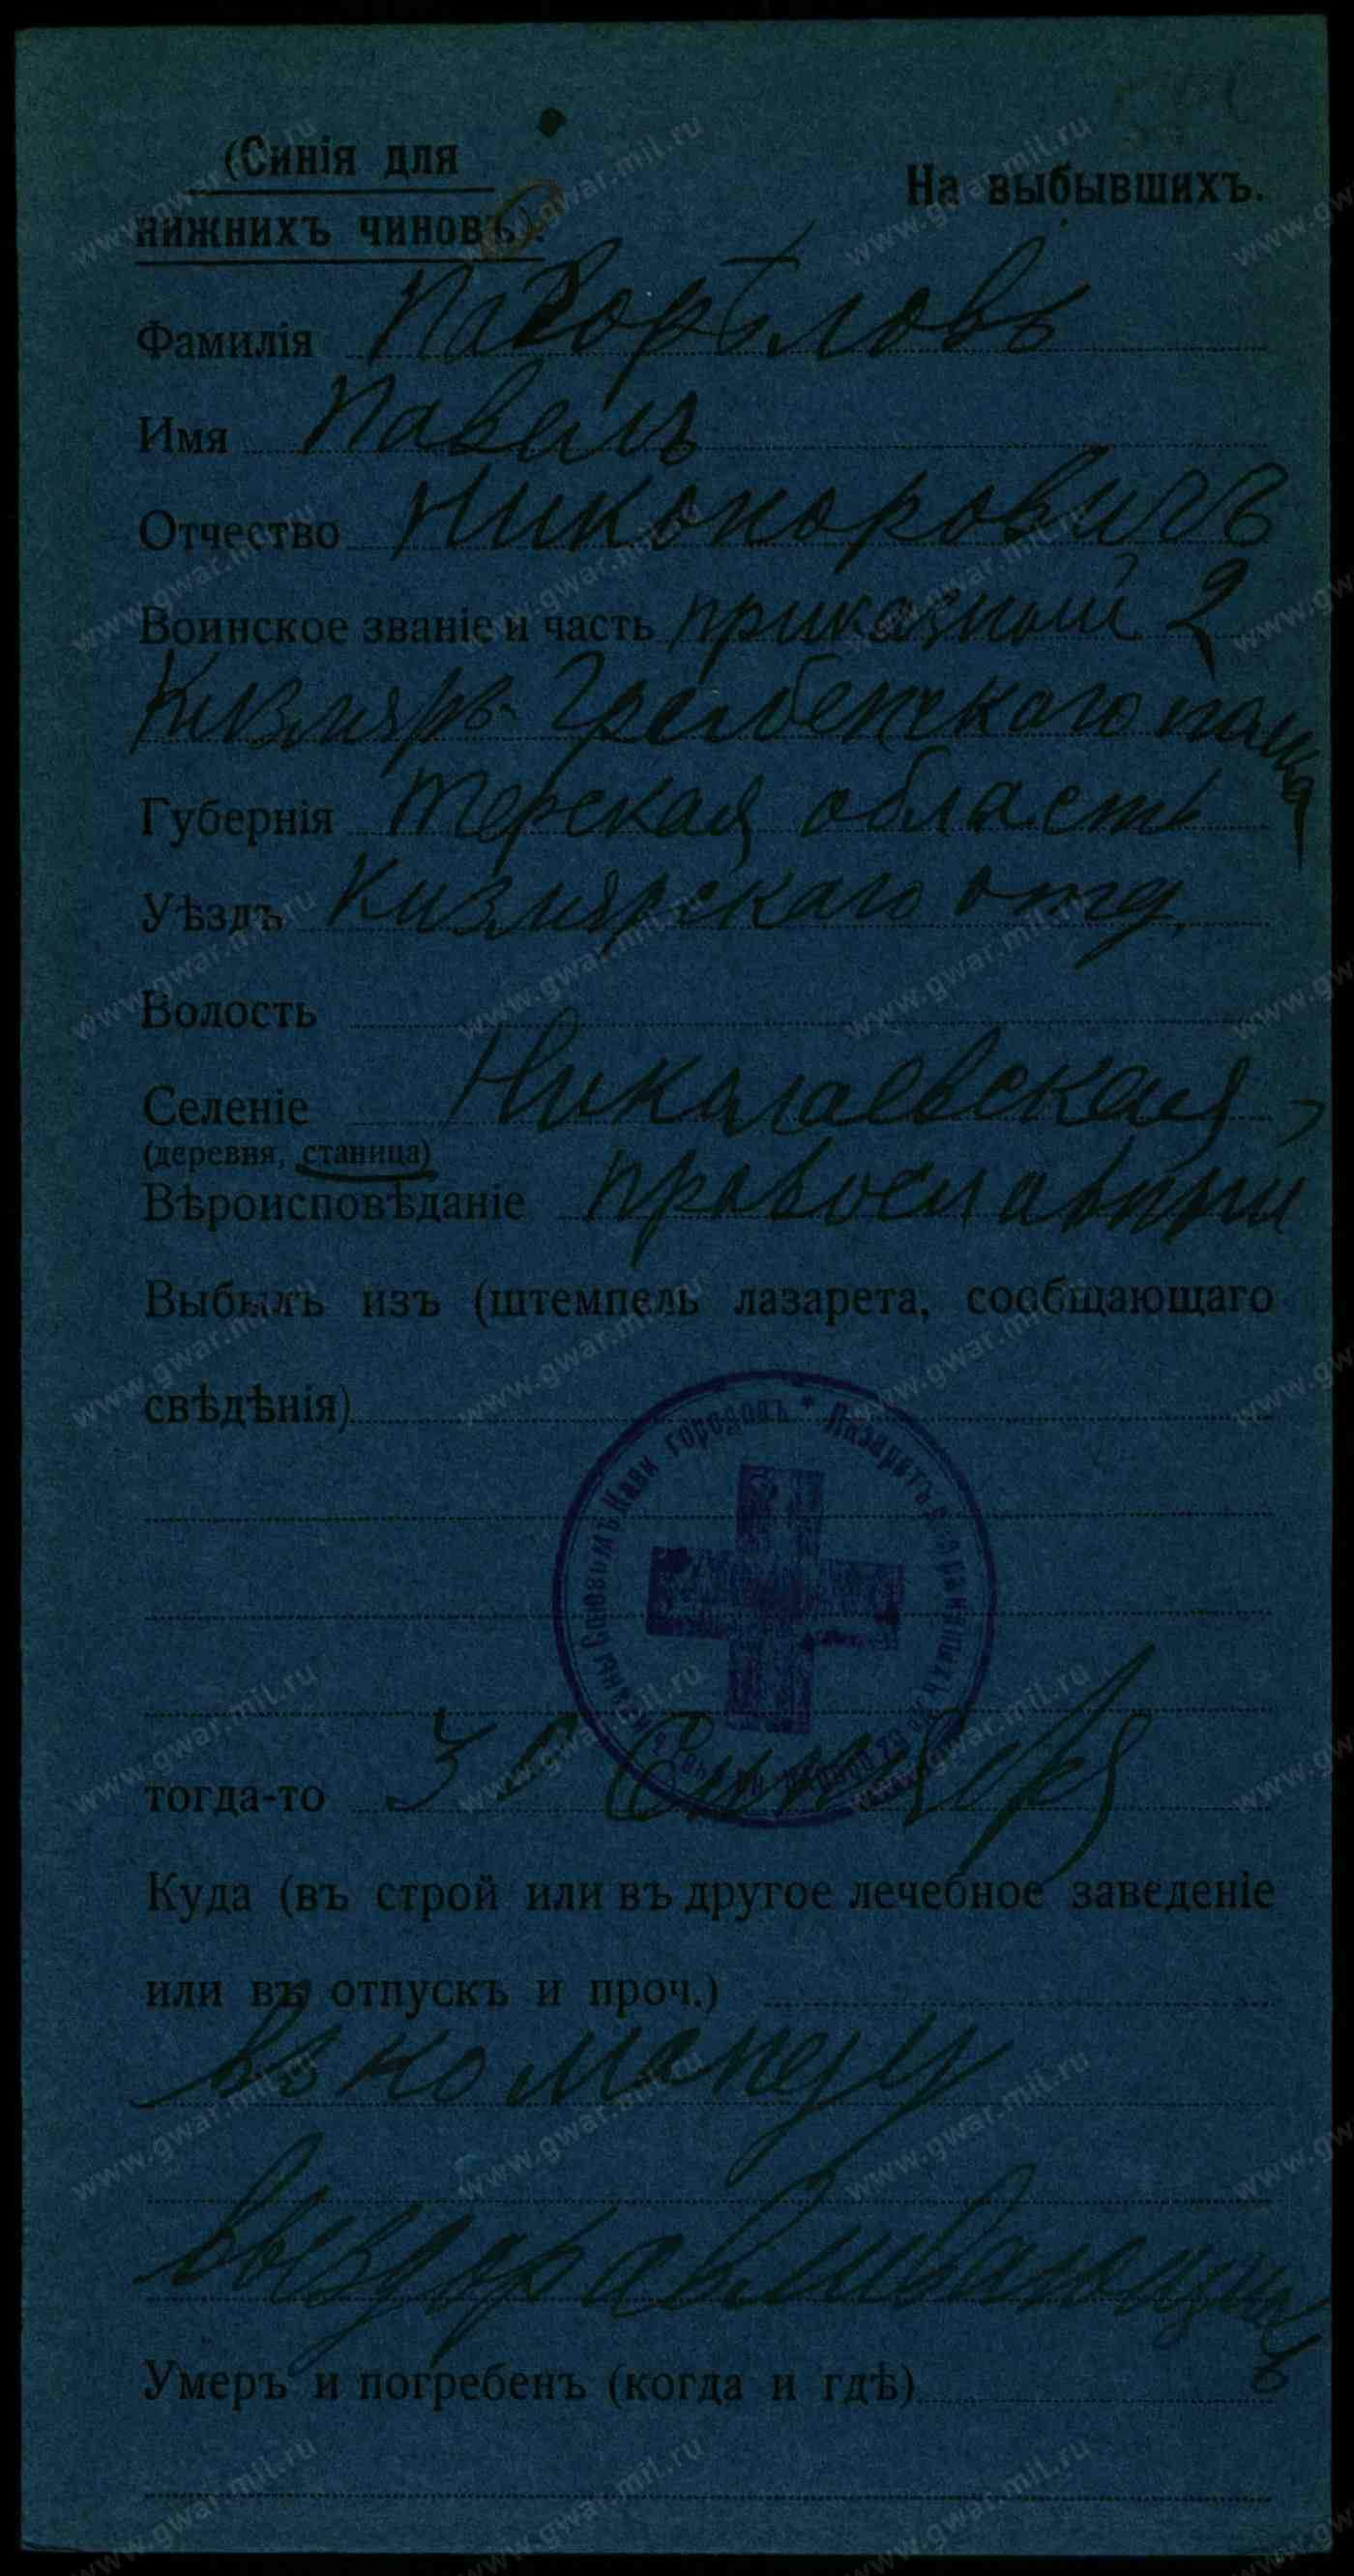 (Синія для
нижнихъ чиновъ).
На выбывшихъ.
Фамилія Пагорѣловъ
Имя Павелъ
Отчество Никоноровичъ
Воинское званіе и часть приказный 2
Кизляро-Гребенскаго полка
Губернія Терская область
Уѣздъ Кизлярскаго отд.
Волость
Селеніе Николаевская
(деревня, станица)
Вѣроисповѣданіе православный
Выбылъ изъ (штемпель лазарета, сообщающаго
свѣдѣнія)
Союзомъ Кавк городовъ * Лазаретъ
тогда-то 30 Сентября
Куда (въ строй или въ другое лечебное заведеніе
или въ отпускъ и проч.)
въ команду
выздравливающихъ
Умеръ и погребенъ (когда и гдѣ)
www.gwar.mil.ru